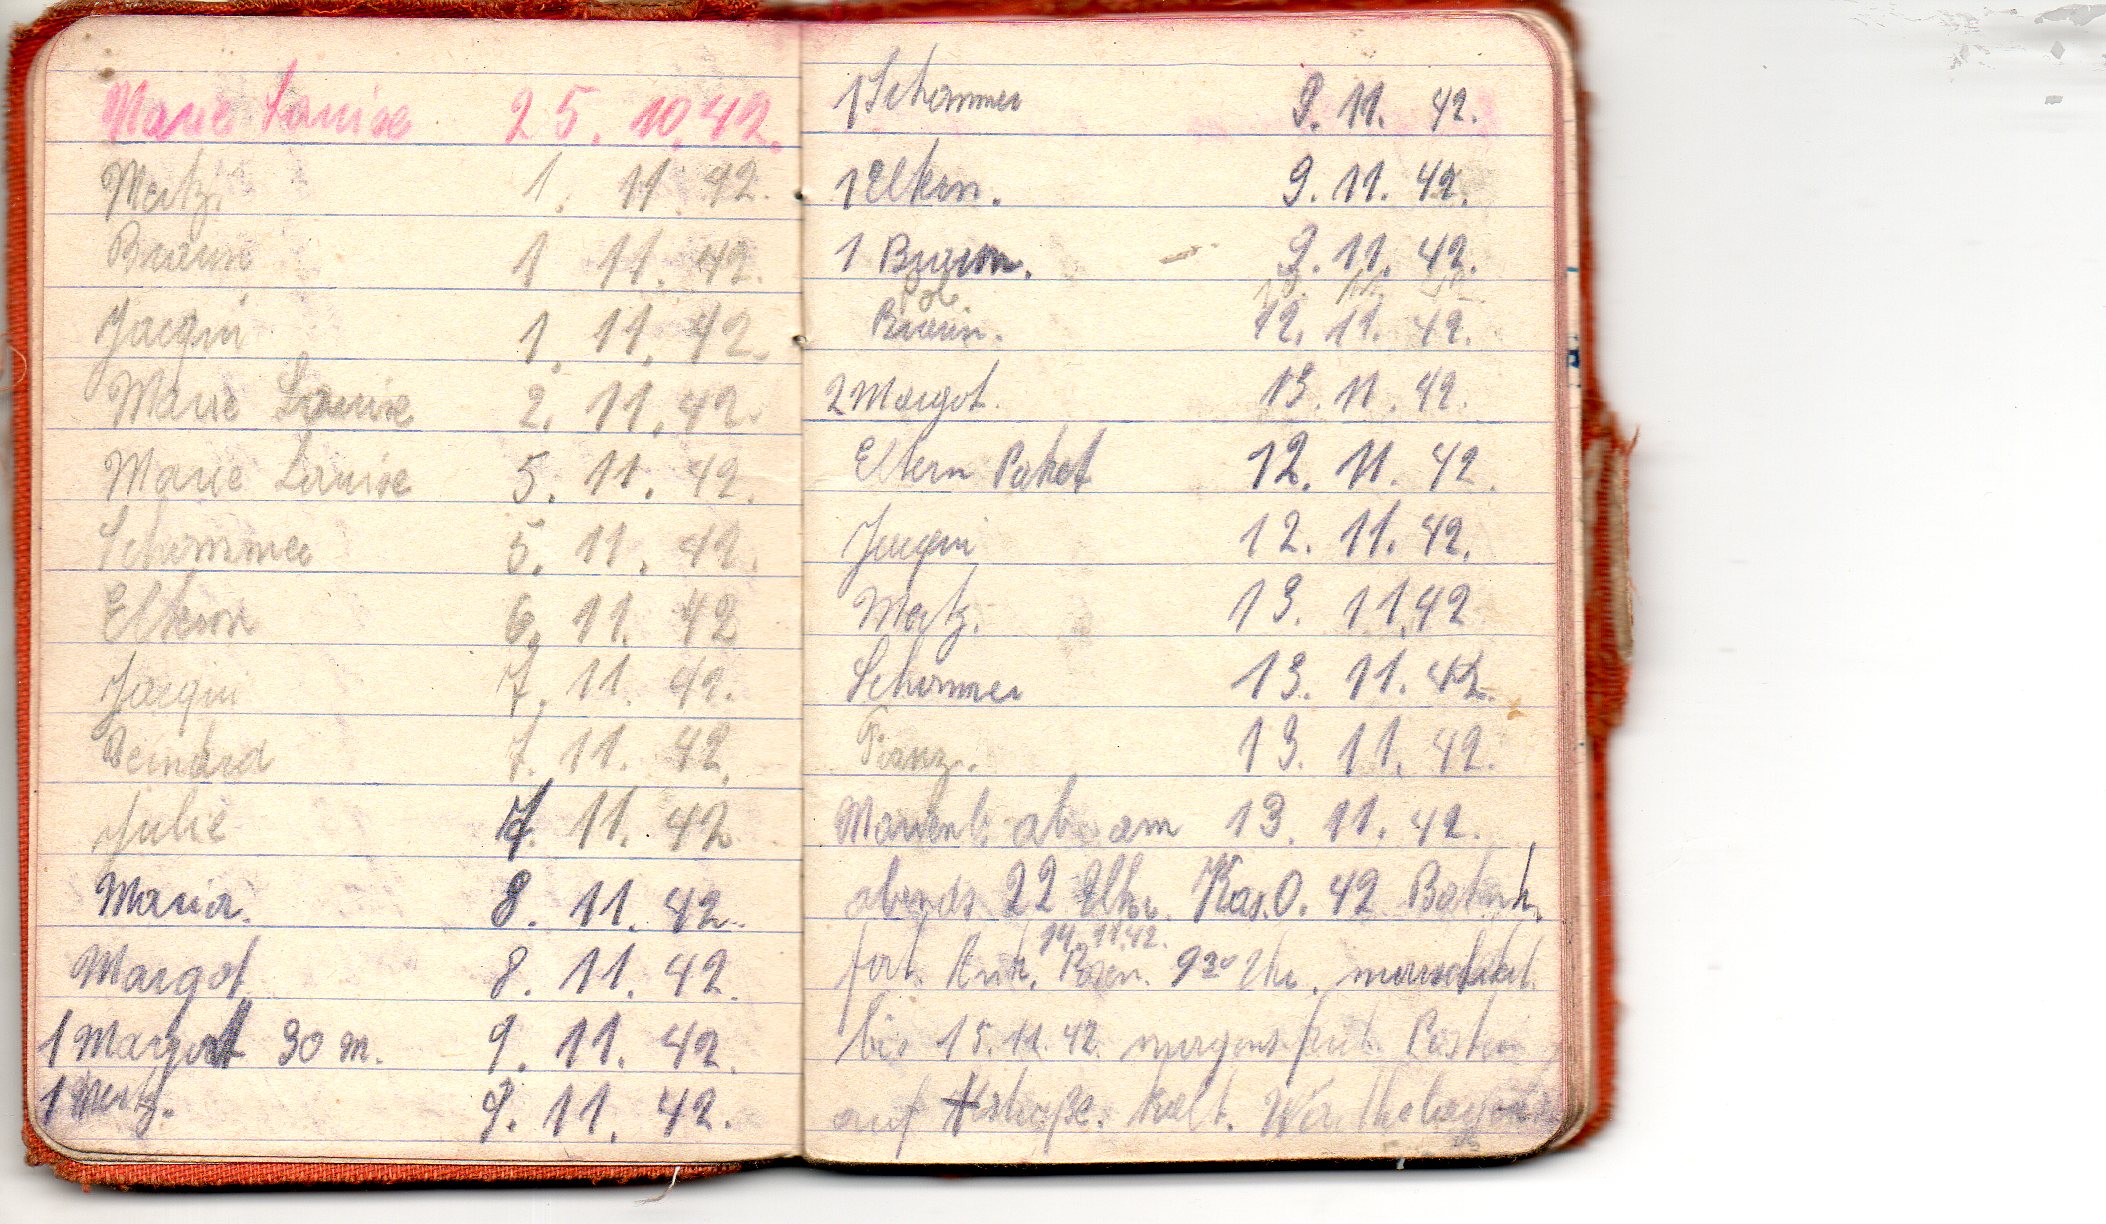 Marie Louise 25. 10. 42.
Mertz. 1. 11. 42.
Braun 1 11. 42.
Jacqui 1. 11. 42.
Marie Louise 2. 11. 42.
Marie Louise 5. 11. 42.
Schommer 5. 11. 42.
Eltern 6. 11. 42
Jacqui 7. 11. 42.
Bernard 7. 11. 42.
Julie 7. 11. 42
Maria. 8. 11. 42.
Margot 8. 11. 42.
1 Margot 30 m. 9. 11. 42.
1 Mertz. 9. 11. 42.
1 Schommer 9. 11. 42.
1 Eltern. 9. 11. 42.
1 Braun. 9. 11. 42.
Braun. 12. 11. 42.
2 Margot. 13. 11. 42.
Eltern Paket 12. 11. 42.
Jacqui 12. 11. 42.
Mertz. 13. 11. 42
Schommer 13. 11. 42.
13. 11. 42.
Marienb. ab am 13. 11. 42.
abends 22 Uhr. 42 Bahnh.
14. 11. 42.
fort. 9 30 Uhr. marschiert.
bis 15. 11. 42. morgens früh. Posten
auf kalt.